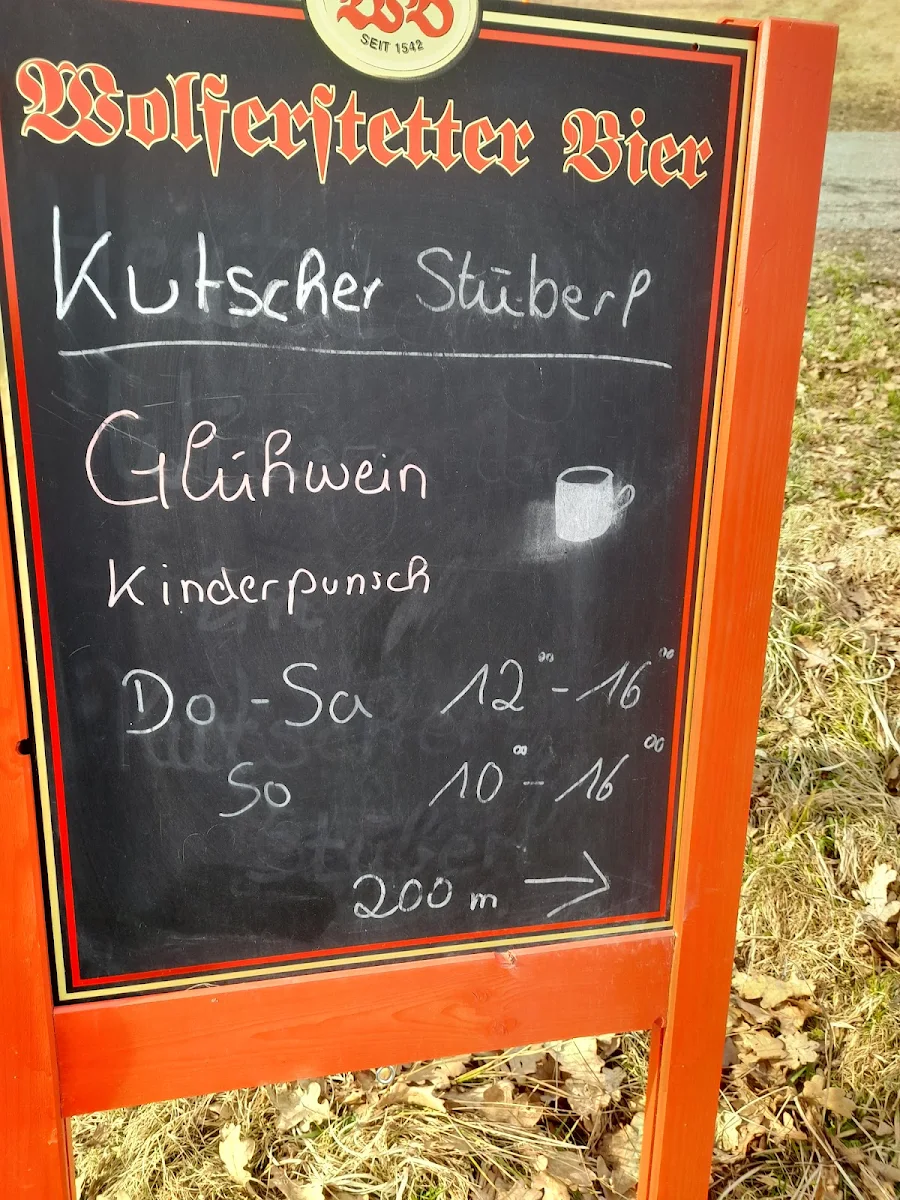 WB
SEIT 1542
Wolferstetter Bier
Kutscher Stüberl
Glühwein
Kinderpunsch
Do - Sa 12⁰⁰ - 16⁰⁰
So 10⁰⁰ - 16⁰⁰
200 m →